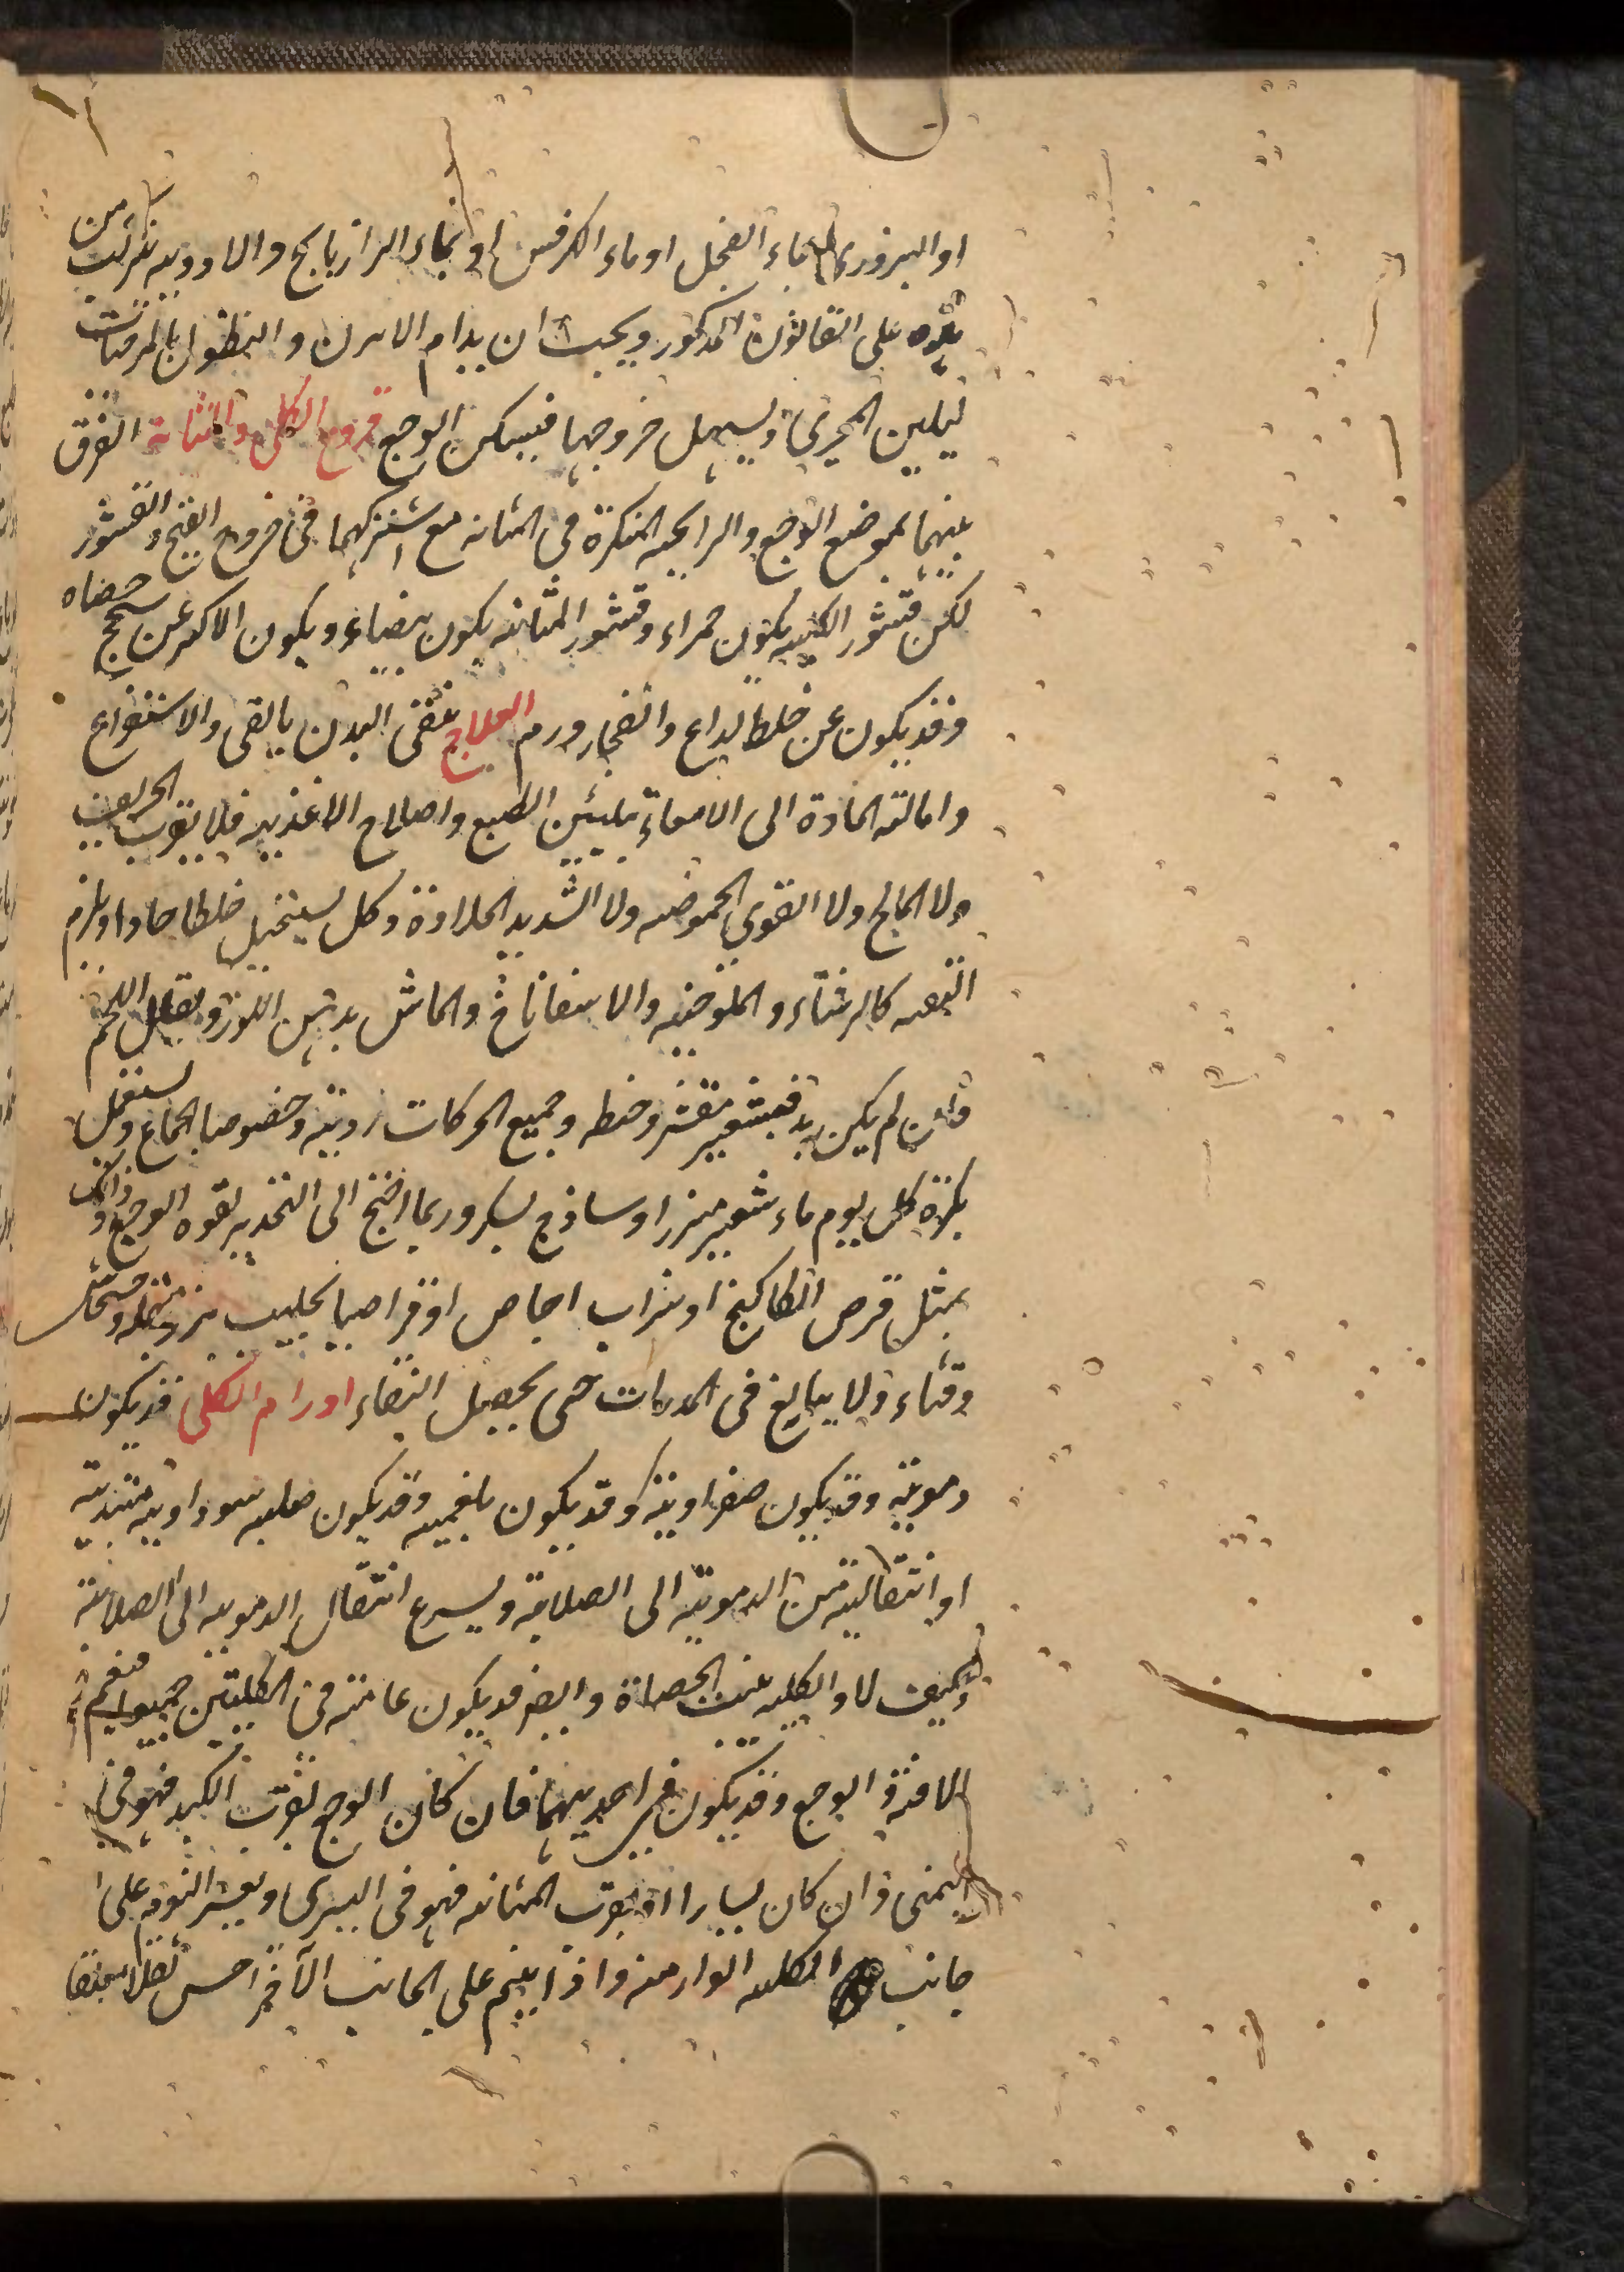 او البزوري بماء الفجل او ماء الكرفس او بماء الرازيانج والادويه تركب من
هذه على القانون المذكور ويجب ان يدام الابزن والنطول بالمرخيات
ليلين المجرى ويسهل خروجها فيسكن الوجع قروح الكلى والمثانة الفرق
بينهما بموضع الوجع والرايحه المنكرة في المثانه مع اشتراكهما في خروج القيح والقشور
لكن قشور الكليه يكون حمراء وقشور المثانه يكون بيضاء ويكون الاكثر عن سحج حصاه
وقد يكون عن خلط لداع وانفجار ورم العلاج ينقى البدن بالقى والاستفراغ
وامالته المادة الى الامعاء بتليين الطبع واصلاح الاغذيه فلا يقرب الحريف
ولا المالح ولا القوي الحموضه ولا الشديد الحلاوة وكل يستحيل خلطا حادا ويلزم
التفهه كالرشتاء والملوخيه والاسفاناخ والماش بدهن اللوز ويقلل اللحم
فان لم يكن بد فبشعير مقشر وحنطه وجميع الحركات رديه وخصوصا الجماع ويستعمل
بكرة كل يوم ماء شعير مبزرا وساذج بسكر وربما احتيج الى التخدير لقوه الوجع وذلك
بمثل قرص الكاكنج او شراب اجاص او قراصيا بحليب بزر بقله وخشخاش
وقثاء ولا يبالغ في المدرات حتى يحصل النقاء اورام الكلى قد يكون
دمويه وقد يكون صفراويه وقد يكون بلغميه وقد يكون صلبه سوداويه مبتدئة
او انتقاليه من الدمويه الى الصلابه ويسرع انتقال الدمويه الى الصلابه
وكيف لا والكليه بيت الحصاة وايضا قد يكون عامته في الكليتين جميعا فيعم
الافة والوجع وقد يكون في احديهما فان كان الوجع بقرب الكبد فهو في
اليمنى وان كان يسارا او بقرب المثانه فهو في اليسرى ويعسر النوم على
جانب الكليه الوارمه واذا ينم على الجانب الآخر احس ثقلا معلقا